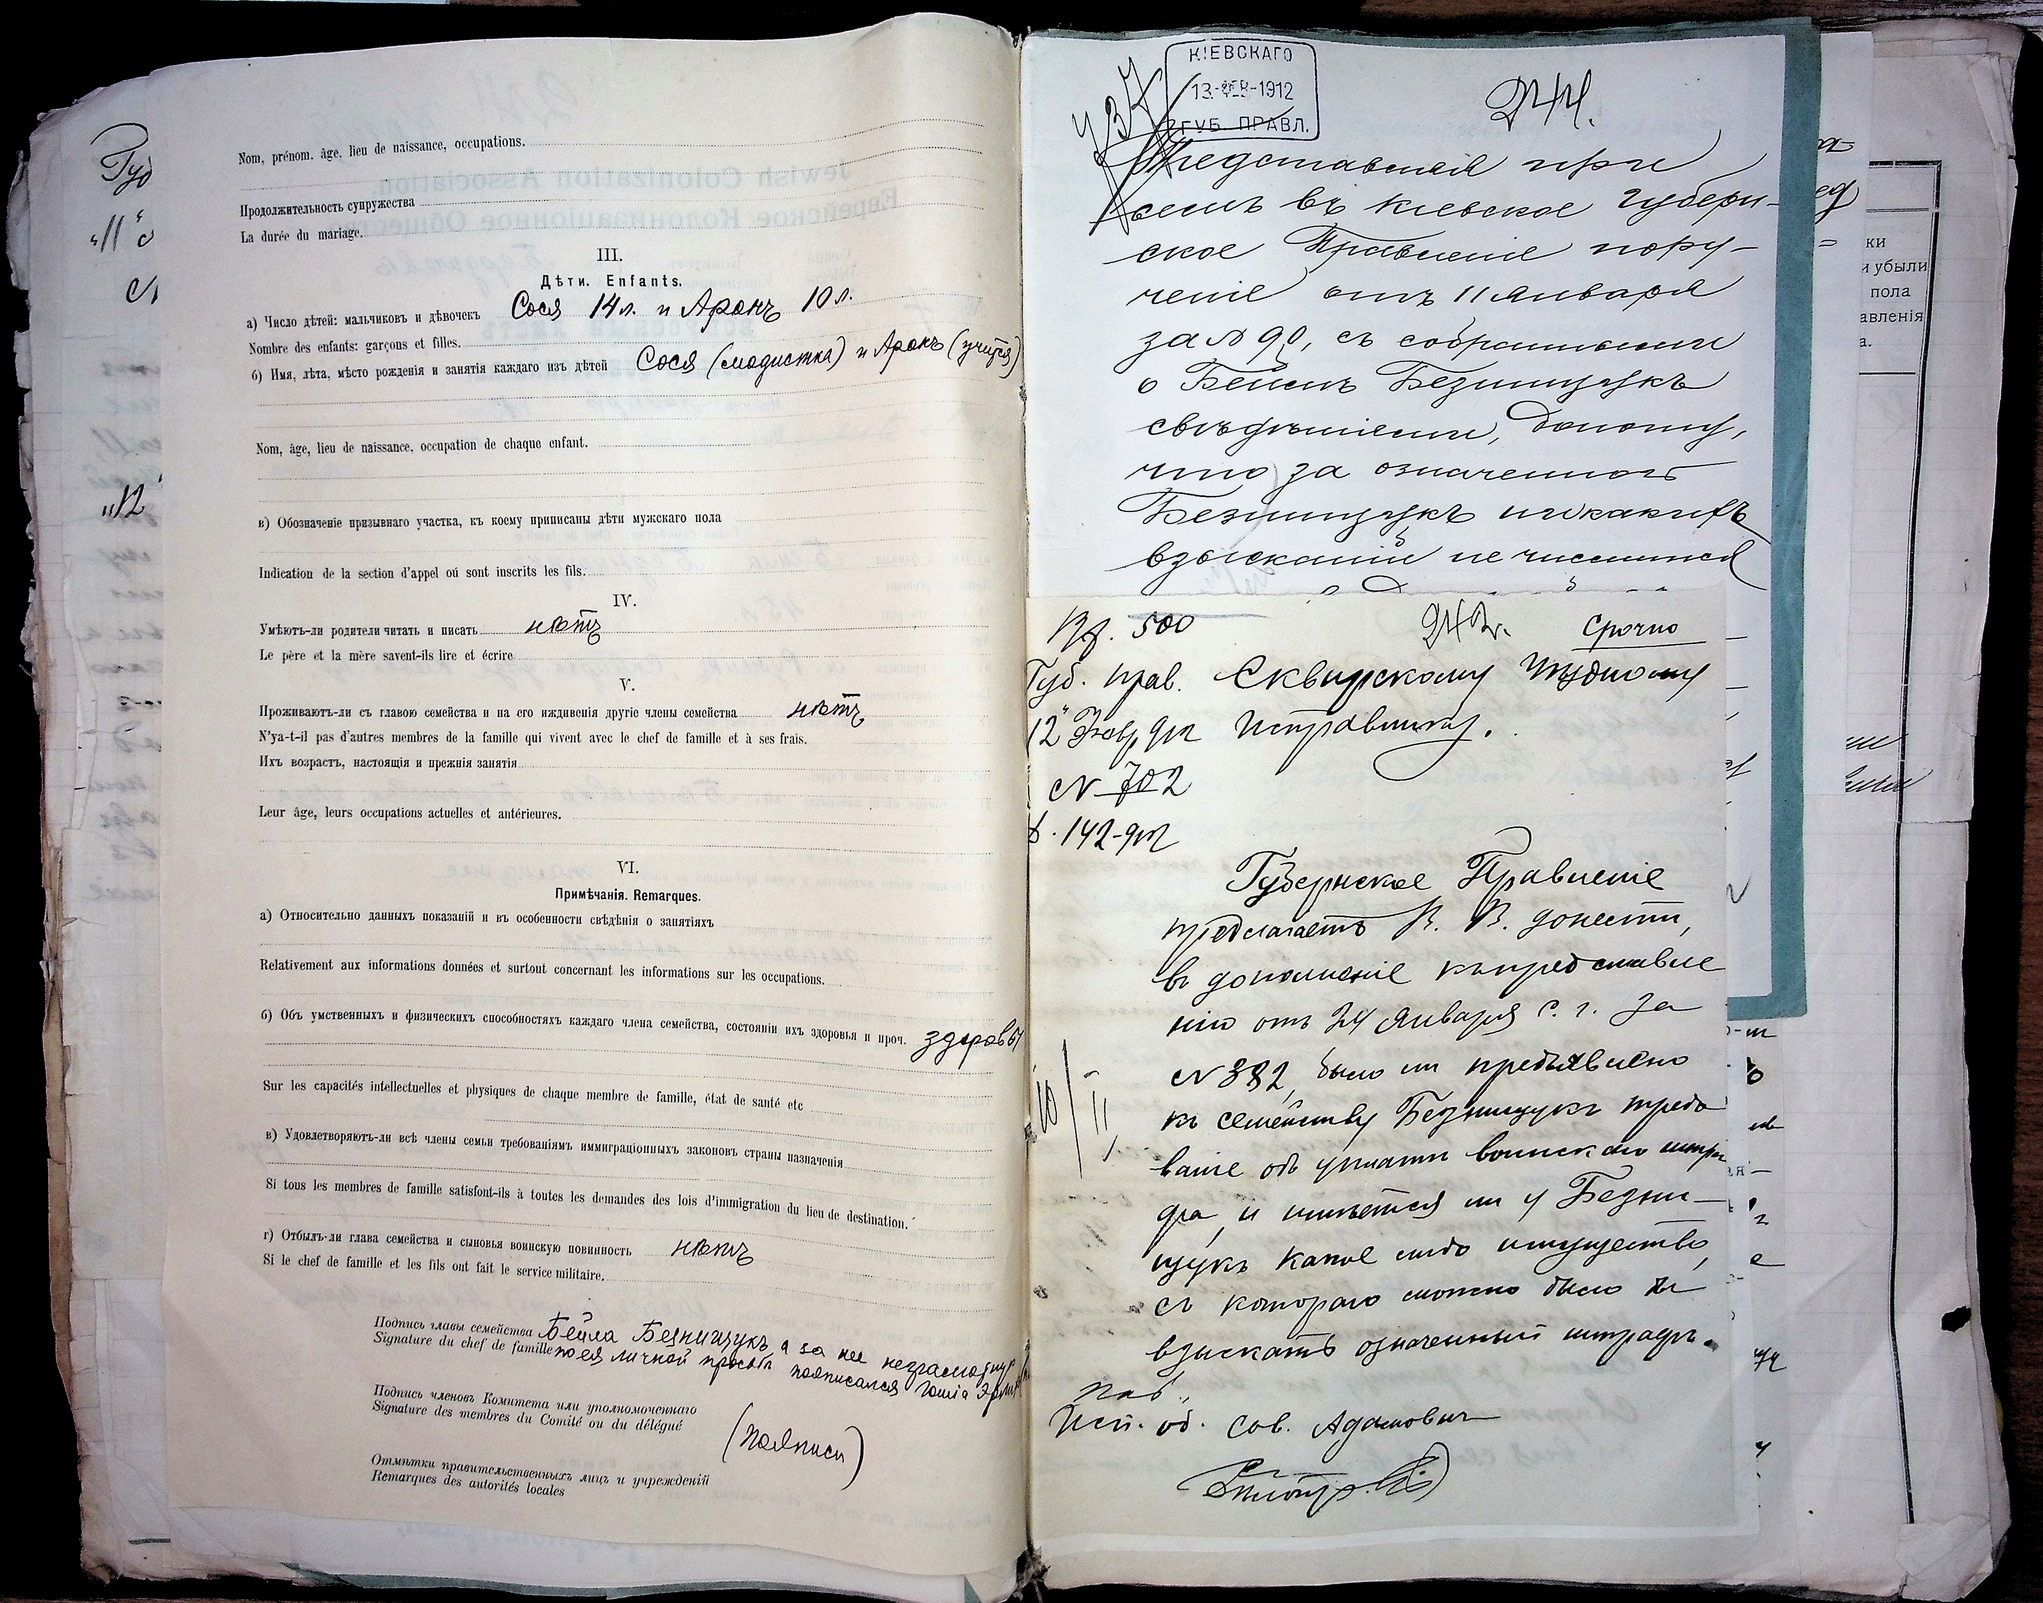 Nom, prénom. âge, lieu de naissance, occupations.
Продолжительность супружества
La durée du mariage.
III.
Дѣти. Enfants.
а) Число дѣтей: мальчиковъ и дѣвочекъ Сося 14л. и Аронъ 10 л.
Nombre des enfants: garçons et filles.
б) Имя, лѣта, мѣсто рожденія и занятія каждаго изъ дѣтей Сося (модистка) и Аронъ (учится)
Nom, âge, lieu de naissance, occupation de chaque enfant.
в) Обозначеніе призывнаго участка, къ коему приписаны дѣти мужскаго пола
Indication de la section d'appel oú sont inscrits les fils.
IV.
Умѣютъ-ли родители читать и писать нѣтъ
Le père et la mère savent-ils lire et écrire
V.
Проживаютъ-ли съ главою семейства и на его иждивенія другіе члены семейства нѣтъ
N'ya-t-il pas d'autres membres de la famille qui vivent avec le chef de famille et à ses frais.
Ихъ возрастъ, настоящія и прежнія занятія
Leur âge, leurs occupations actuelles et antérieures.
VI.
Примѣчанія. Remarques.
а) Относительно данныхъ показаній и въ особенности свѣдѣнія о занятіяхъ
Relativement aux informations données et surtout concernant les informations sur les occupations.
б) Объ умственныхъ и физическихъ способностяхъ каждаго члена семейства, состояніи ихъ здоровья и проч. здоровы
Sur les capacités intellectuelles et physiques de chaque membre de famille, état de santé etc
в) Удовлетворяютъ-ли всѣ члены семьи требованіямъ иммиграціонныхъ законовъ страны назначенія
Si tous les membres de famille satisfont-ils à toutes les demandes des lois d'immigration du lieu de destination.
г) Отбылъ-ли глава семейства и сыновья воинскую повинность нѣтъ
Si le chef de famille et les fils ont fait le service militaire.
Подпись главы семейства Бейла Безнищукъ, а за нее неграмотную
Signature du chef de famille по ея личной просьбѣ подписался
Подпись членовъ Комитета или уполномоченнаго
Signature des membres du Comité ou du délégué
(подписи)
Отмѣтки правительственныхъ лицъ и учрежденій
Remarques des autorités locales
КІЕВСКАГО
13-ФЕВ-1912
ГУБ. ПРАВЛ.
437
244.
Представляя при
семъ въ Кіевское Губерн-
ское Правленіе пору-
ченіе отъ 11 января
за № 90, съ собранными
о Бейлѣ Безнищукъ
свѣдѣніями, доношу,
что за означенной
Безнищукъ никакихъ
взысканій не числится
500
242.
Срочно
Губ. прав. Сквирскому Уѣздному
12 Февр. 912 Исправнику.
№ 702
142-912
Губернское Правленіе
предлагаетъ В. В. донести,
въ дополненіе къ представле
нію отъ 24 января с. г. за
№ 382, было ли предъявлено
къ семейству Безнищукъ требо
ваніе объ уплатѣ воинскаго штра
фа и имѣется ли у Безни-
щукъ какое либо имущество,
съ котораго можно было бы
взыскать означенный штрафъ.
10/II
Исп. об. Сов. Адамовичъ
ки
и убыли
пола
авленія
а.
Губ
"11"
"12"